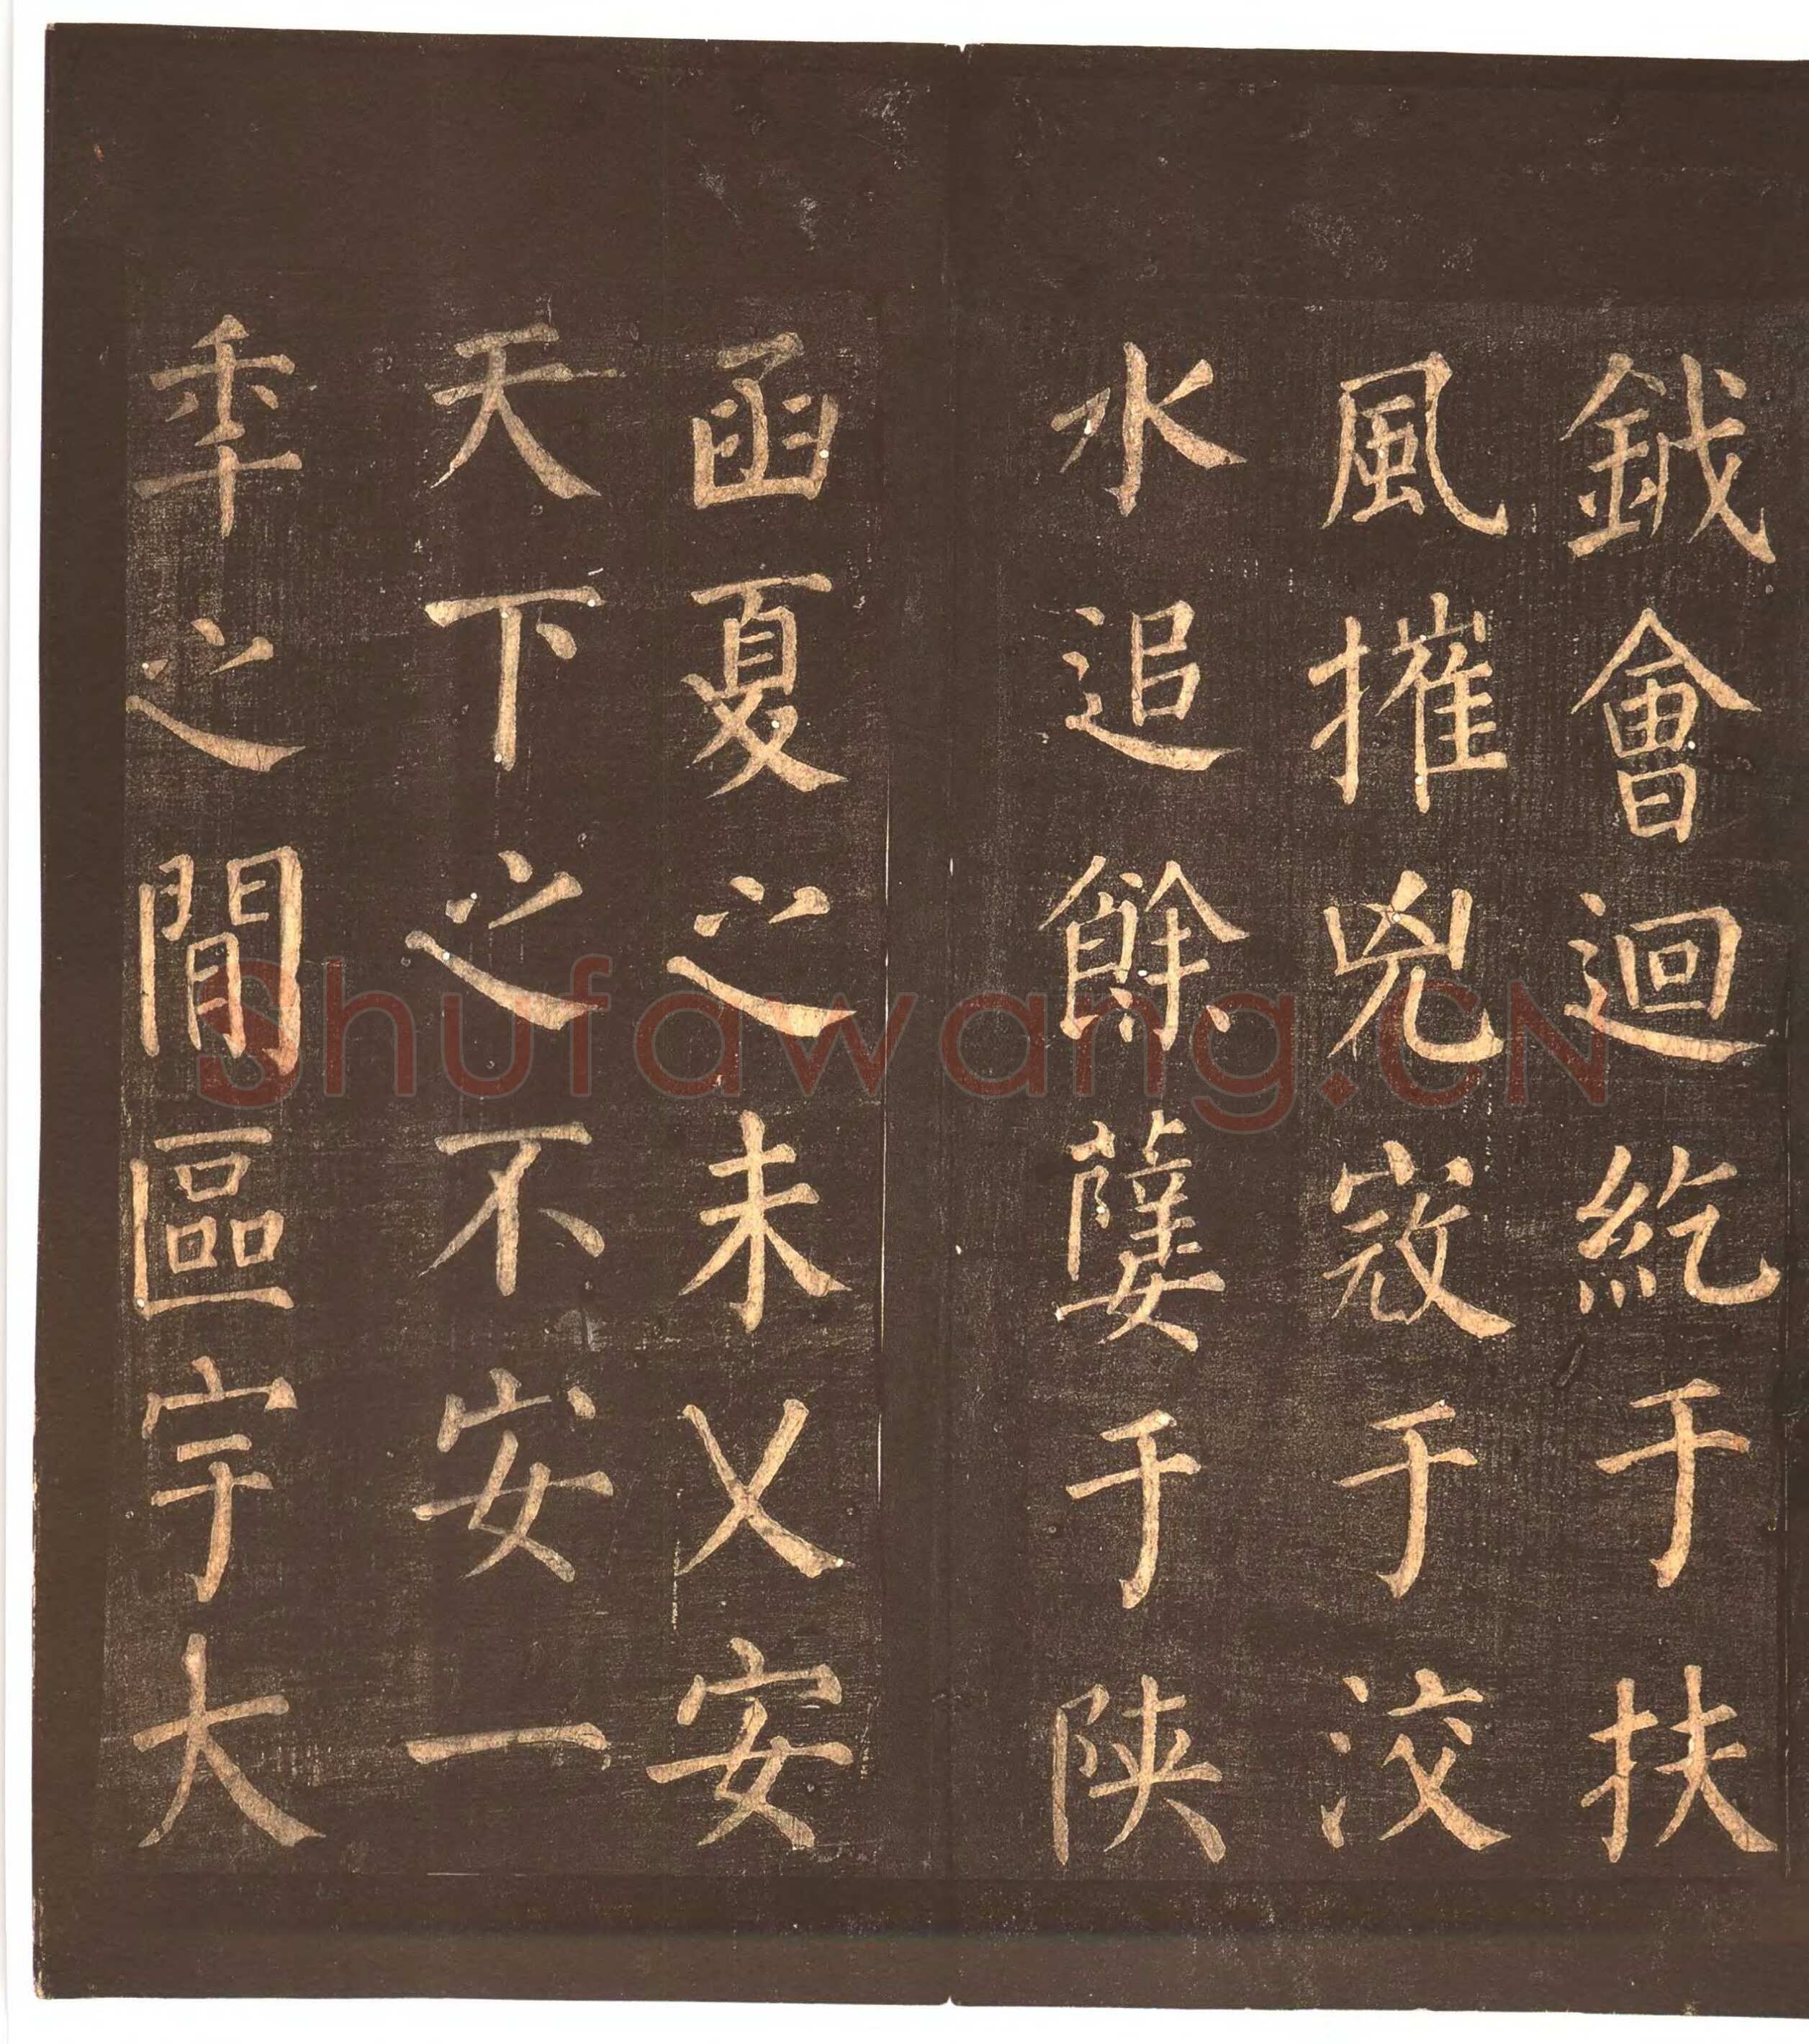 鉞會迴紇于扶
風摧兇寇于洨
水追餘孽于陝
函夏之未乂安
天下之不安一
年之間區宇大
Shufawang.CN